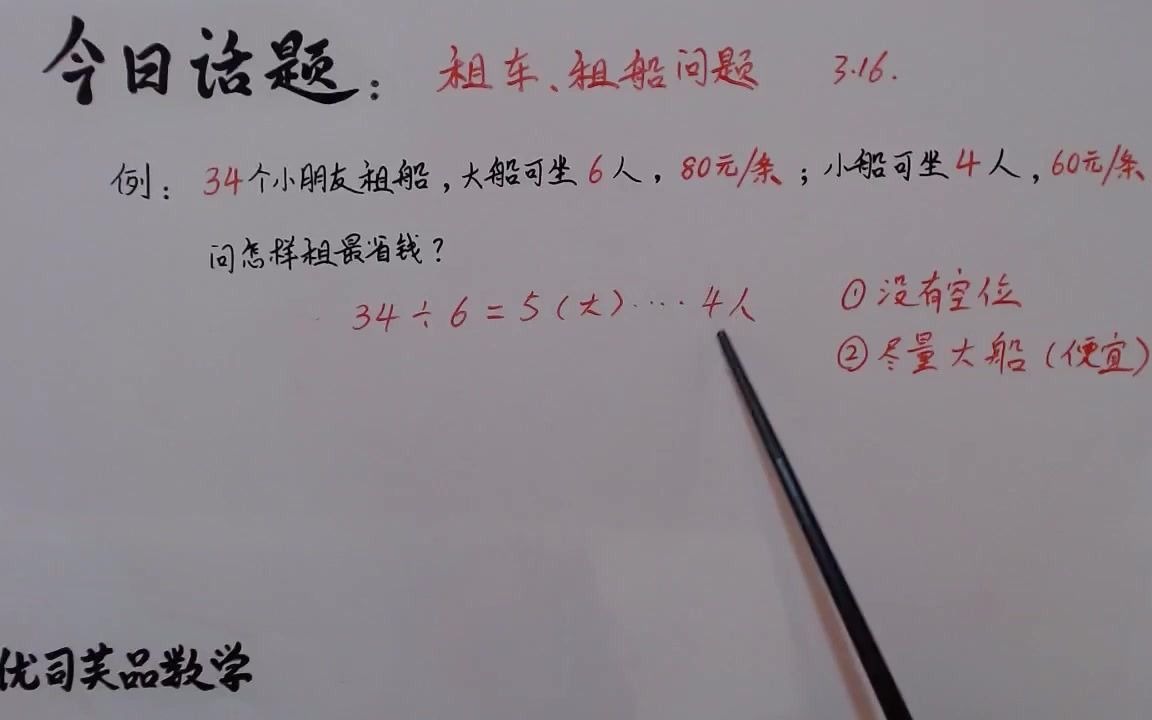 今日话题：租车、租船问题 3.16.
例：34个小朋友租船，大船可坐6人，80元/条；小船可坐4人，60元/条
问怎样租最省钱？
34÷6=5(大)····4人
①没有空位
②尽量大船(便宜)
优司芙品数学